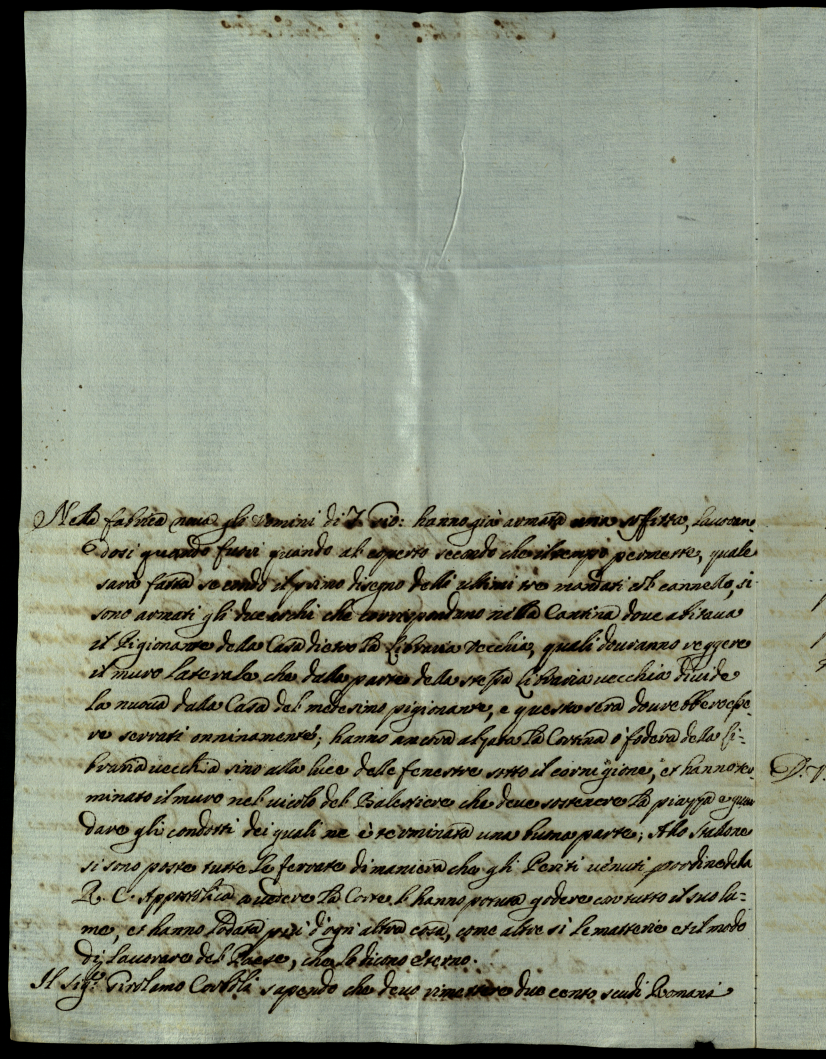 Nella fabrica nuova gli uomini di S. Gio: hanno già armata una soffitta, lauoran-
dosi quando fuori quando al coperto secondo che il tempo permette, quale
sarà fatta secondo il primo disegno delli ultimi tre mandati al cannello, si
sono armati gli due archi che corrispondano nella Cantina doue abitaua
il Pigionante della Casa dietro la Libraria Vecchia, quali douranno reggere
il muro laterale che dalla parte della stessa Libraria uecchia diuide
la nuoua dalla Casa del medesimo pigionante, e questa sera dourebbero esse-
re serrati onninamente; hanno ancora alzata la Cortina o' fodera della Li-
braria uecchia sino alla luce delle fenestre sotto il cornigione, et hanno ter-
minato il muro nel uicolo del Balestriere che deue sostenere la piazza e guar-
dare gli condotti dei quali ne è terminata una buona parte; Allo Stallone
si sono poste tutte le ferrate di maniera che gli Periti uenuti per ordine della
R. C. Appostolica a uedere la Corte l'hanno potuta godere con tutto il suo lu-
me, et hanno lodata più d'ogni altra cosa, come altre sì le matterie et il modo
di lauorare del Paese, che le dicono eterno.
Il Sig.r Girolamo Corboli sapendo che deuo rimettere due cento scudi Romani